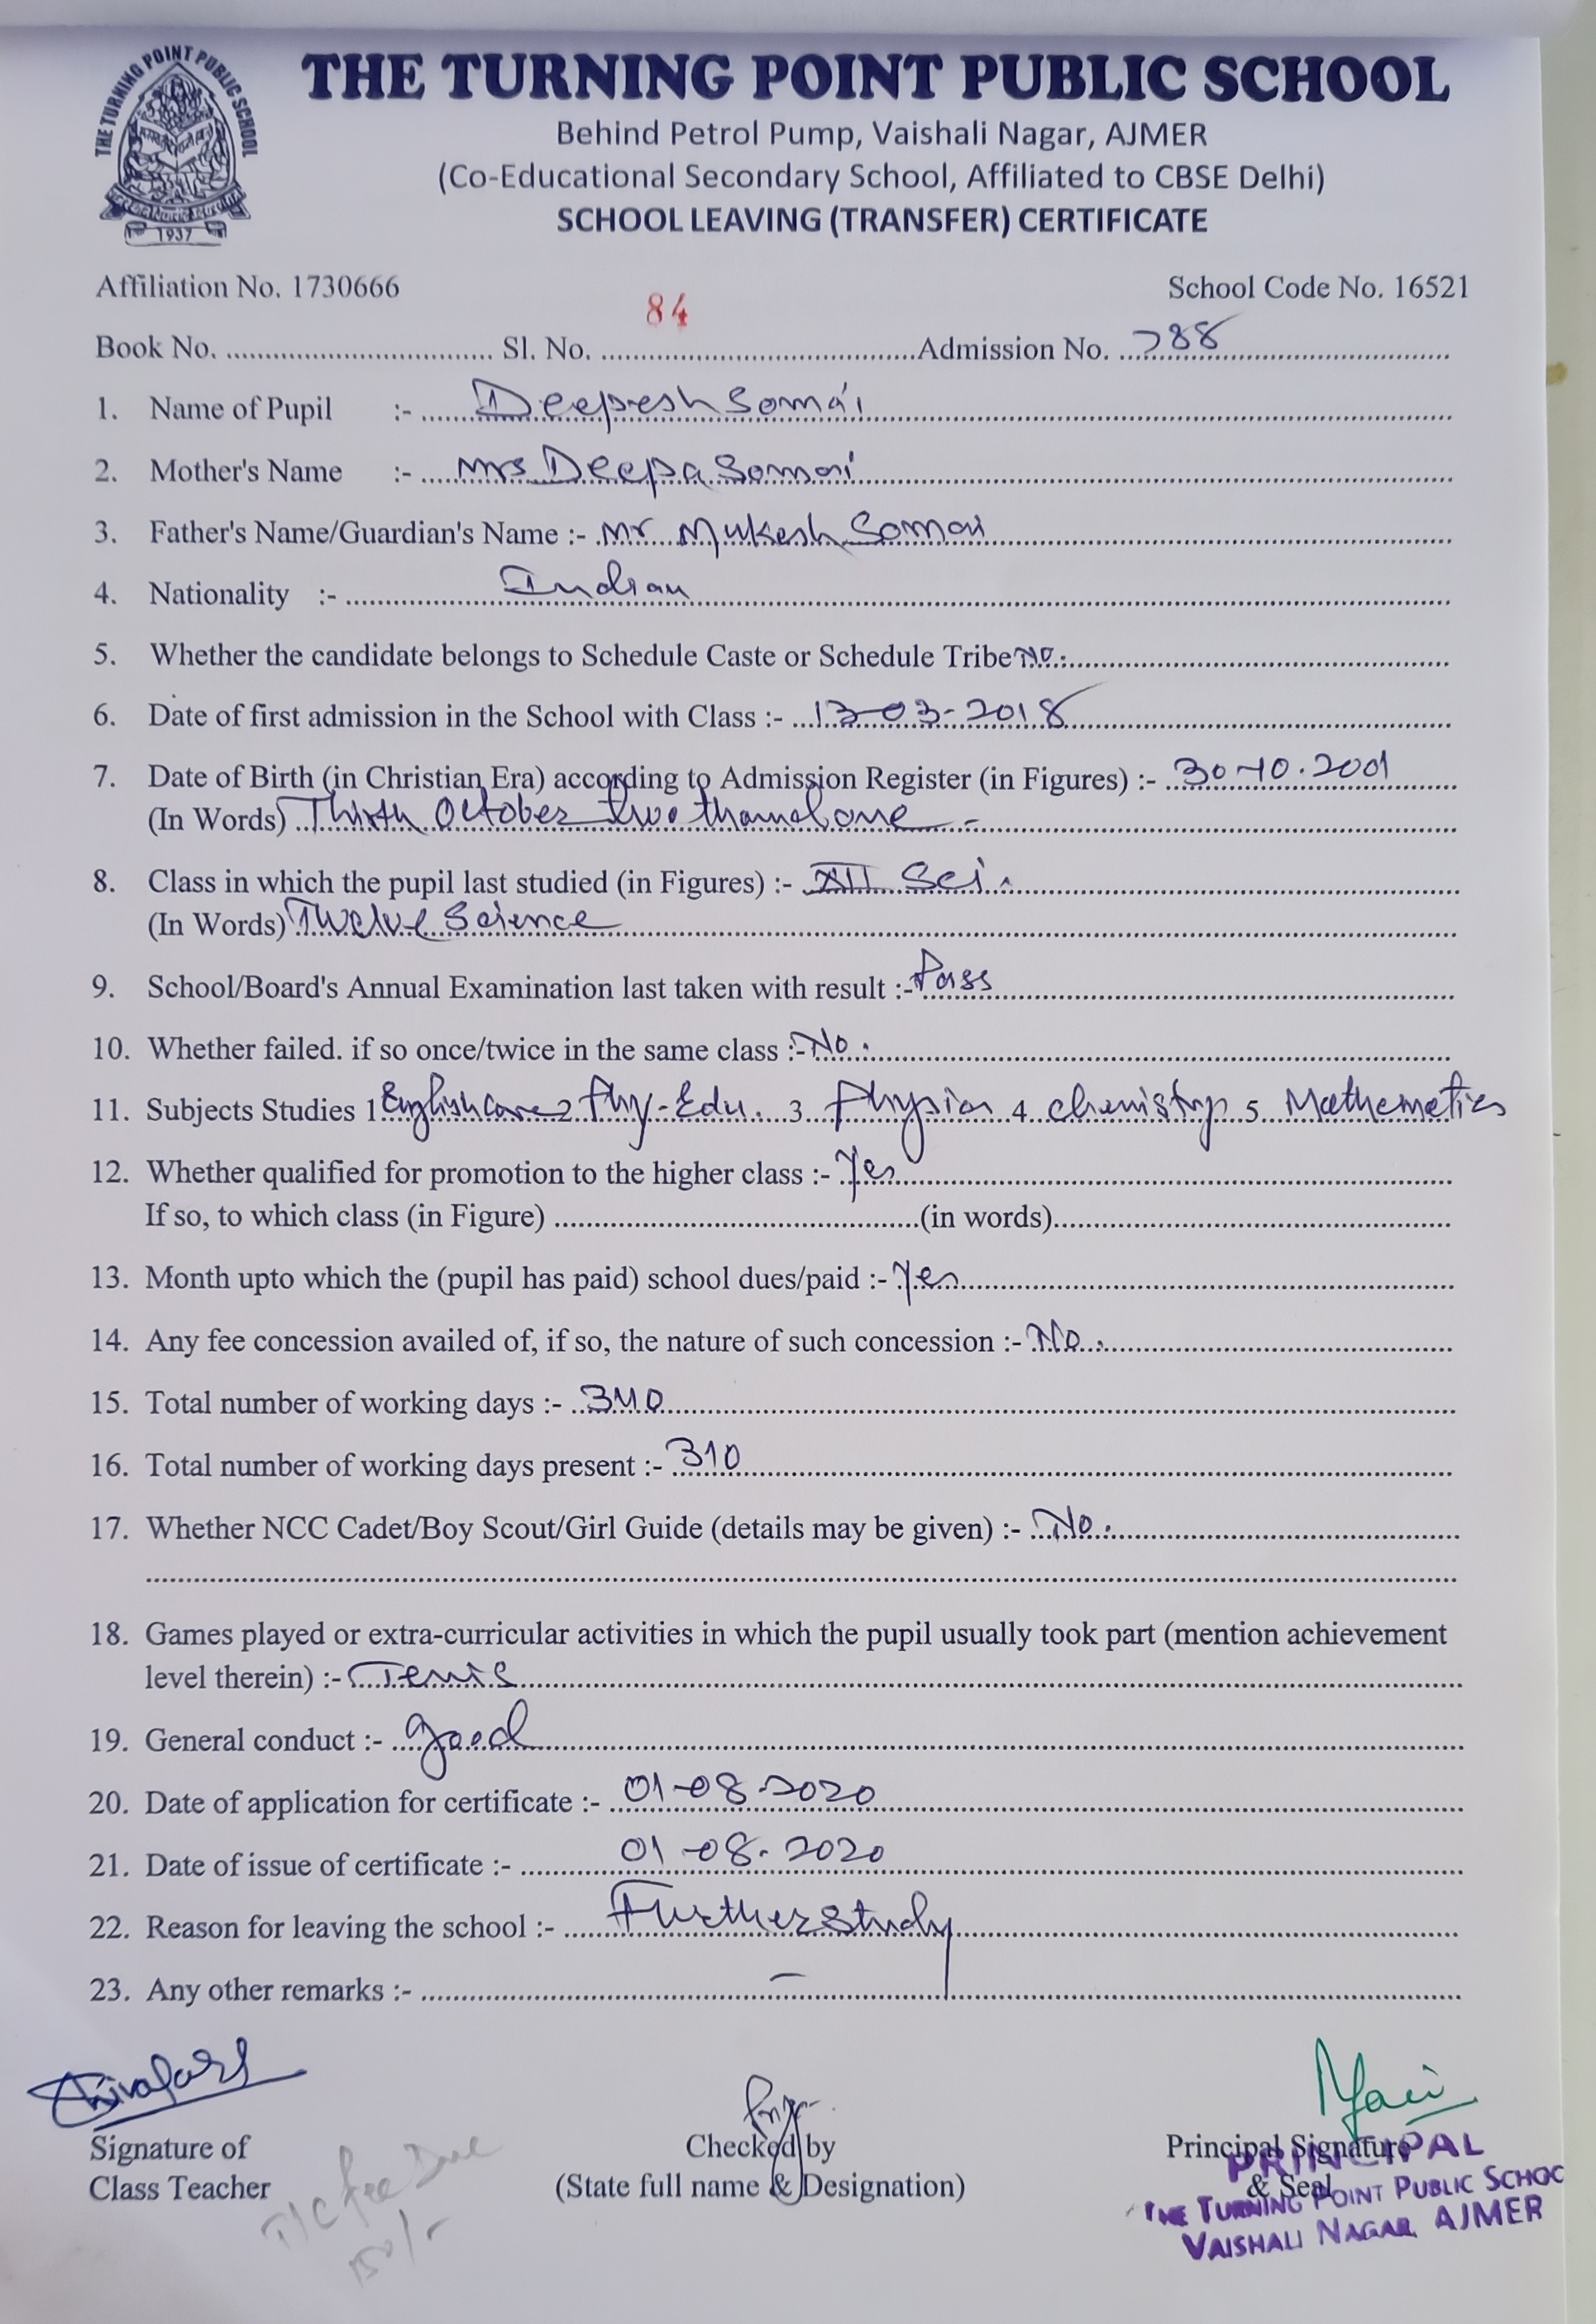 THE TURNING POINT PUBLIC SCHOOL
THE TURNING POINT PUBLIC SCHOOL
1937
Behind Petrol Pump, Vaishali Nagar, AJMER
(Co-Educational Secondary School, Affiliated to CBSE Delhi)
SCHOOL LEAVING (TRANSFER) CERTIFICATE
Affiliation No. 1730666 School Code No. 16521
Book No. Sl. No. 84 Admission No. 788
1. Name of Pupil :- Deepesh Somai
2. Mother's Name :- Mrs Deepa Somai
3. Father's Name/Guardian's Name :- Mr Mukesh Somai
4. Nationality :- Indian
5. Whether the candidate belongs to Schedule Caste or Schedule Tribe No.
6. Date of first admission in the School with Class :- 13-03-2018
7. Date of Birth (in Christian Era) according to Admission Register (in Figures) :- 30-10.2001
(In Words) October two one -
8. Class in which the pupil last studied (in Figures) :- XII Sci.
(In Words) Twelve Science
9. School/Board's Annual Examination last taken with result :- Pass
10. Whether failed. if so once/twice in the same class :- No.
11. Subjects Studies 1 English Core 2 Phy-Edu. 3. Physics 4 chemistry 5 Mathematics
12. Whether qualified for promotion to the higher class :- Yes
If so, to which class (in Figure) (in words)
13. Month upto which the (pupil has paid) school dues/paid :- Yes
14. Any fee concession availed of, if so, the nature of such concession :- No.
15. Total number of working days :- 340
16. Total number of working days present :- 310
17. Whether NCC Cadet/Boy Scout/Girl Guide (details may be given) :- No.
18. Games played or extra-curricular activities in which the pupil usually took part (mention achievement
level therein) :- Tennis
19. General conduct :- good
20. Date of application for certificate :- 01-08-2020
21. Date of issue of certificate :- 01-08.2020
22. Reason for leaving the school :- Further study
23. Any other remarks :- -
Signature of Checked by Principal Signature
Class Teacher (State full name & Designation) & Seal
T/C fee Due
150/-
PRINCIPAL
THE TURNING POINT PUBLIC SCHOO
VAISHALI NAGAR, AJMER